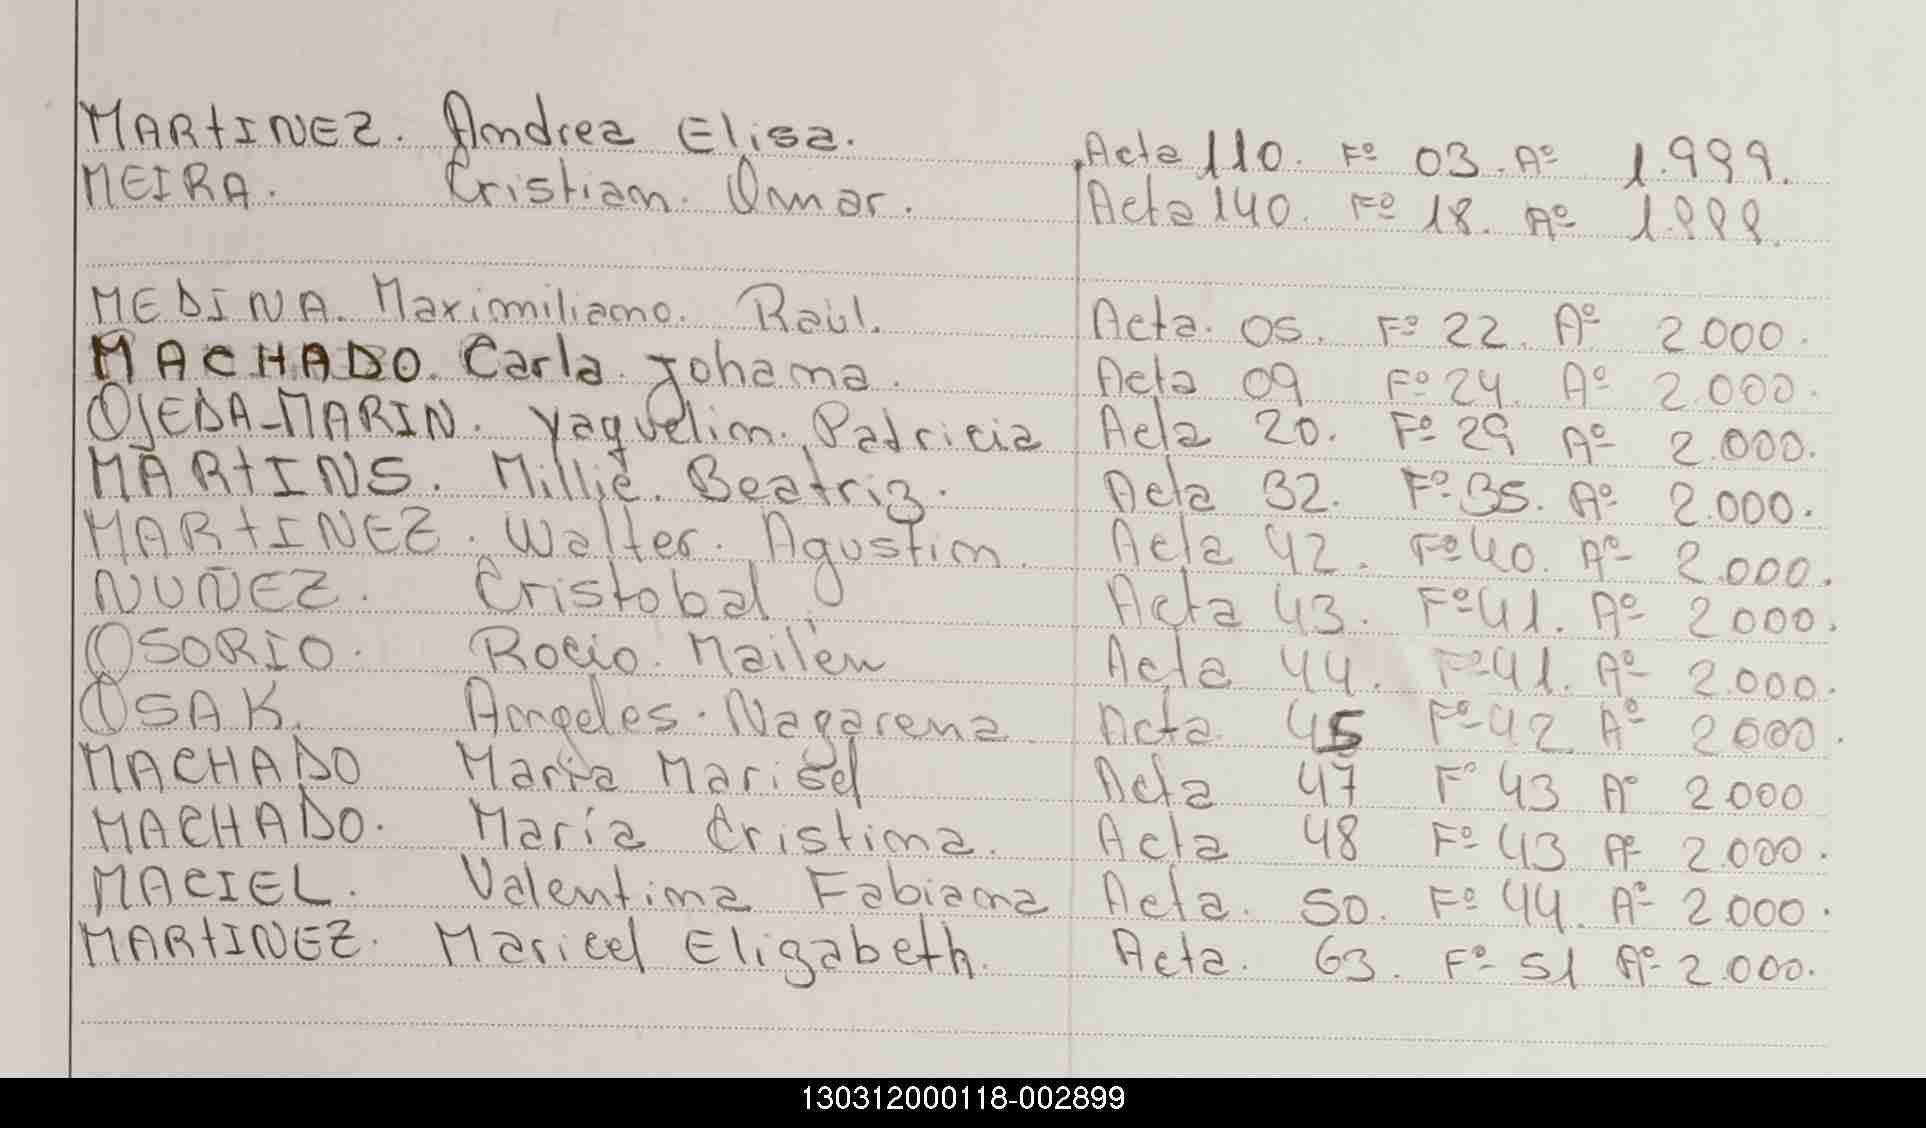 MARTINEZ. Andrea Elisa. Acta 110. Fº 03. Aº 1.999.
MEIRA. Cristian. Omar. Acta 140. Fº 18. Aº 1.999.
MEDINA. Maximiliano. Raúl. Acta. 05. Fº 22. Aº 2.000.
MACHADO. Carla. Johana. Acta 09 Fº 24. Aº 2.000.
OJEDA-MARIN. Yaquelin. Patricia Acta 20. Fº 29 Aº 2.000.
MARTINS. Millie. Beatriz. Acta 32. Fº 35. Aº 2.000.
MARTINEZ. Walter. Agustin. Acta 42. Fº 40. Aº 2.000.
NUÑEZ. Cristobal. Acta 43. Fº 41. Aº 2000.
OSORIO. Rocio. Mailén Acta 44. Fº 41. Aº 2.000.
OSAK. Angeles. Nazarena Acta 45 Fº 42 Aº 2000.
MACHADO María Marisel Acta 47 Fº 43 Aº 2000
MACHADO. María Cristina. Acta 48 Fº 43 Aº 2.000.
MACIEL. Valentina Fabiana Acta. 50. Fº 44. Aº 2.000.
MARTINEZ. Maricel Elizabeth. Acta. 63. Fº 51 Aº 2.000.
130312000118-002899